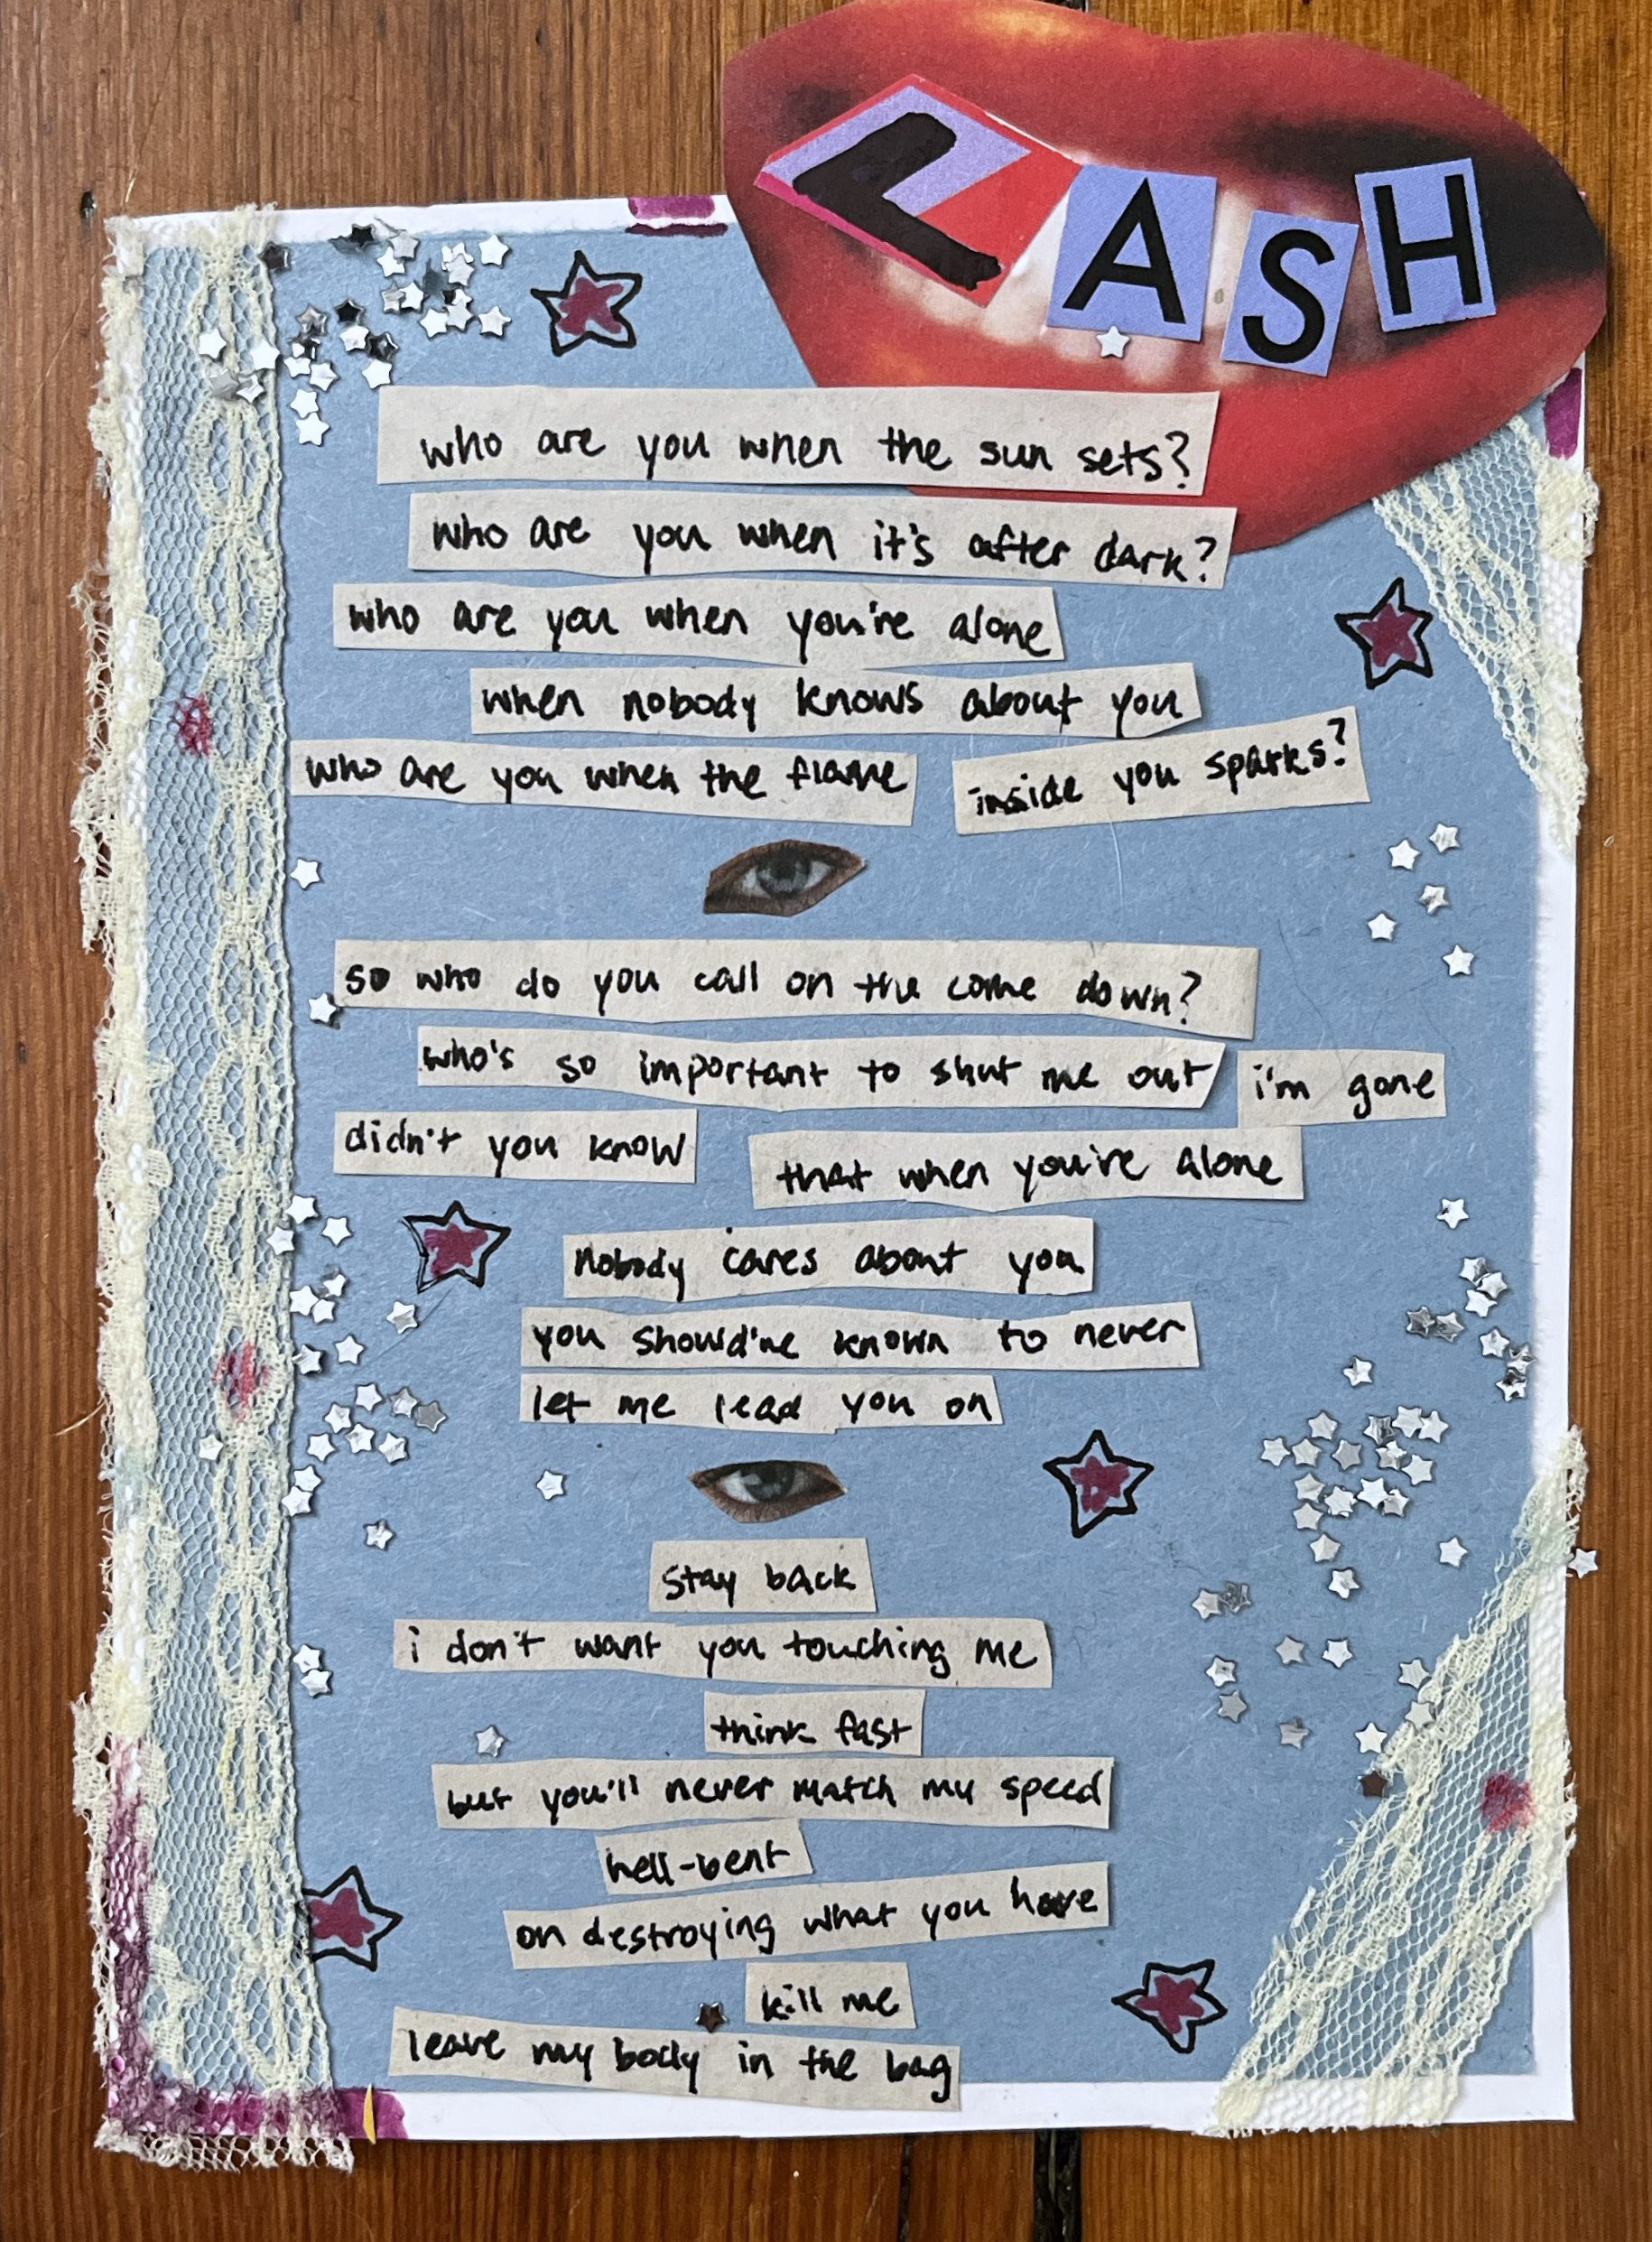 LASH
who are you when the sun sets?
who are you when it's after dark?
who are you when you're alone
when nobody knows about you
who are you when the flame inside you sparks?
so who do you call on the come down?
who's so important to shut me out i'm gone
didn't you know that when you're alone
nobody cares about you
you should've known to never
let me lead you on
stay back
i don't want you touching me
think fast
but you'll never match my speed
hell-bent
on destroying what you have
kill me
leave my body in the bag